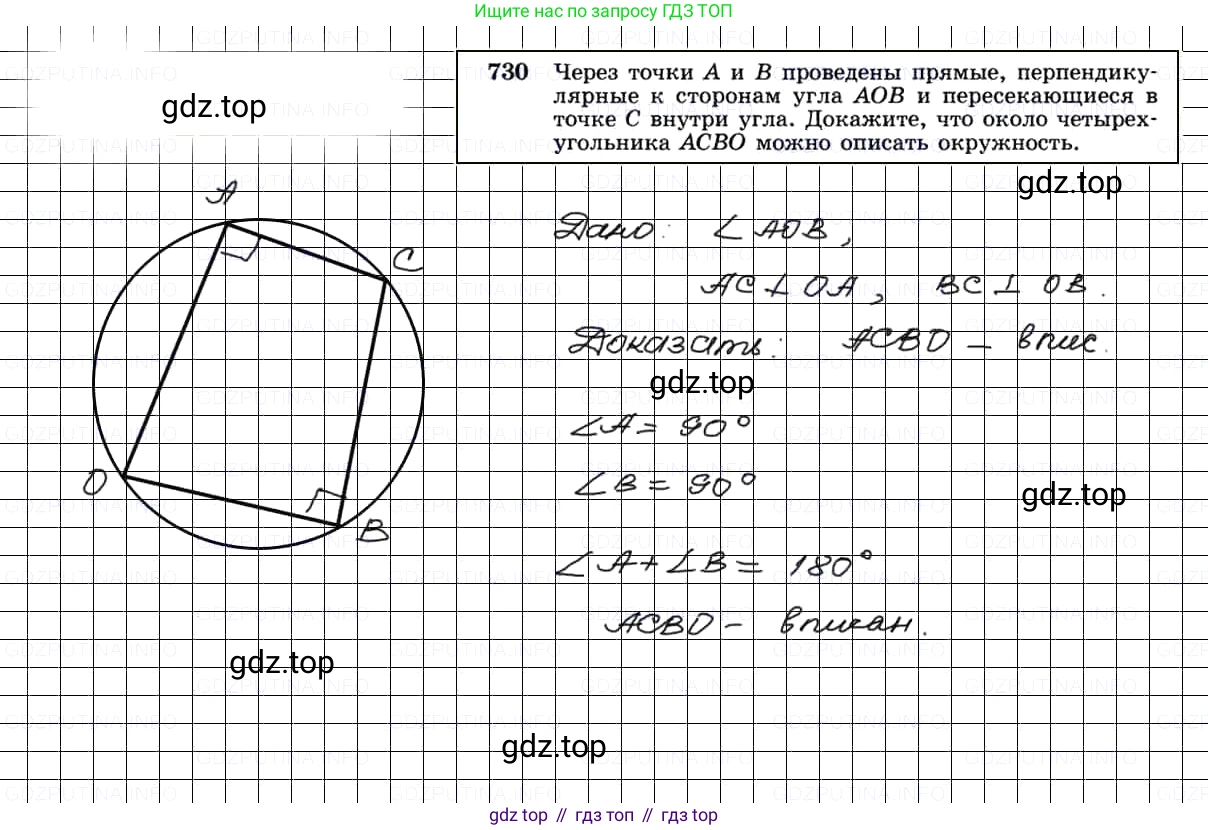 Ищите нас по запросу ГДЗ ТОП
730 Через точки A и B проведены прямые, перпендику-
лярные к сторонам угла AOB и пересекающиеся в
точке C внутри угла. Докажите, что около четырех-
угольника ACBO можно описать окружность.
gdz.top
gdz.top
A
C
O
B
Дано: ∠AOB,
AC⊥OA, BC⊥OB.
Доказать: ACBO – впис.
gdz.top
∠A = 90°
∠B = 90°
gdz.top
∠A + ∠B = 180°
ACBO – вписан.
gdz.top
gdz.top
gdz top // гдз топ // гдз top
GDZPUTINA.INFO